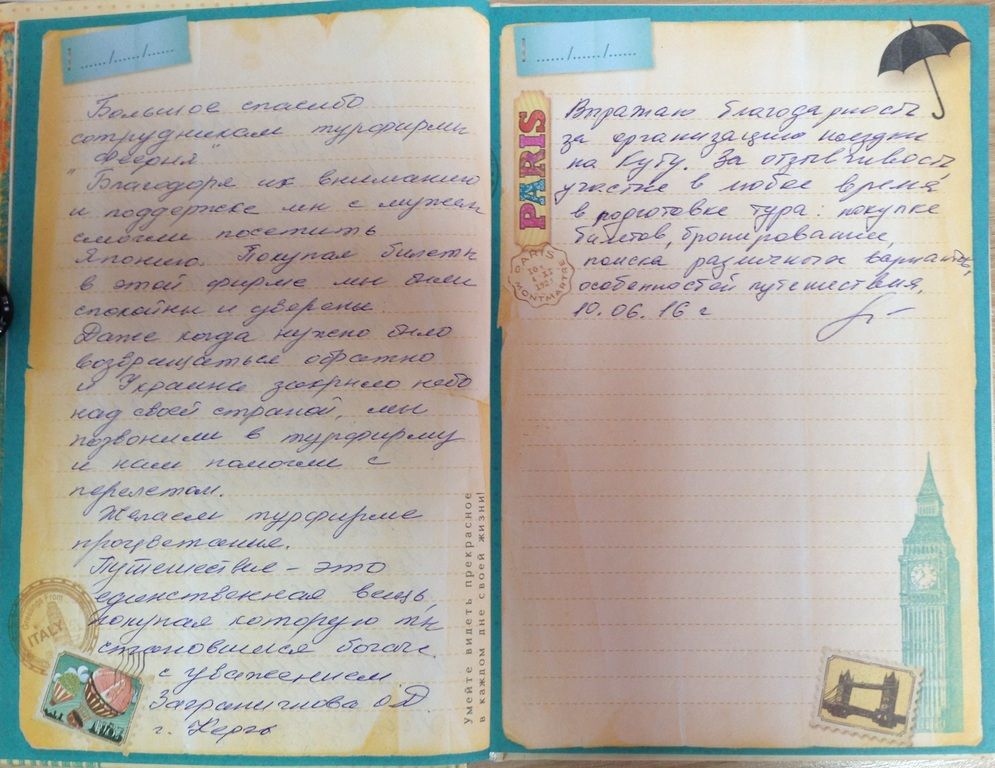 ! ....../....../......
Большое спасибо
сотрудникам турфирмы
"Феерия"
Благодоря их вниманию
и поддержке мы с мужем
смогли посетить
Японию. Покупая билеты
в этой фирме мы были
спокойны и уверены.
Даже когда нужно было
возвращаться обратно
и Украина закрыла небо
над своей страной, мы
позвонили в турфирму
и нам помогли с
перелетом.
Желаем турфирме
процветания.
Путешествие – это
единственная вещь,
покупая которую ты
становишься богаче.
с уважением
О.Д.
г. Керчь
Умейте видеть прекрасное
в каждом дне своей жизни!
Greetings From
ITALY
! ....../....../......
PARIS
PARIS
1921
MONTMARTRE
Выражаю благодарность
за организацию поездки
на Кубу. За отзывчивость,
участие в любое время
в подготовке тура: покупке
билетов, бронирование,
поиска различных вариантов,
особенностей путешествия.
10.06.16 г